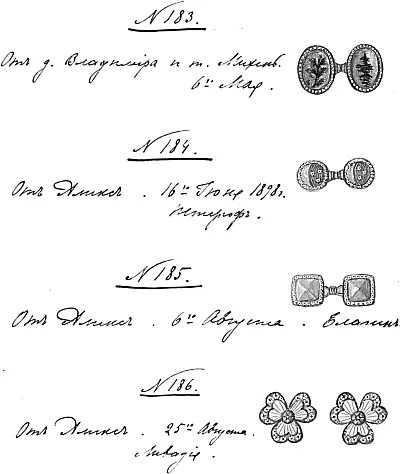 N 183.
Отъ д. Владиміра и т. Михень.
6го Мая.
N 184.
Отъ Аликсъ. 16го Іюня 1898г.
Петергофъ.
N 185.
Отъ Аликсъ. 6го Августа. Елагинъ
N 186.
Отъ Аликсъ. 25го Августа.
Ливадія.